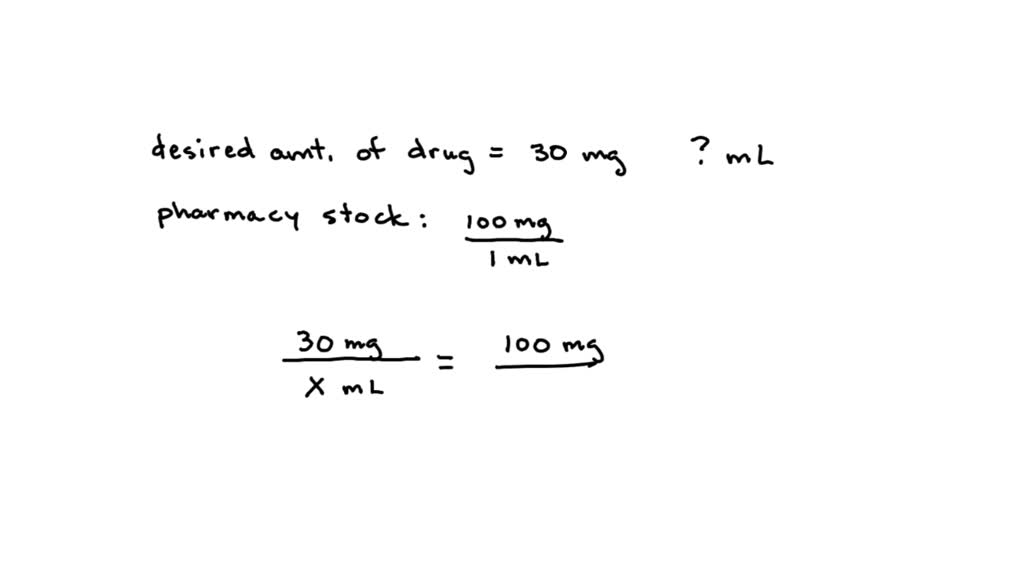 desired amt. of drug = 30 mg ? mL
pharmacy stock: 100 mg
1 mL
30 mg = 100 mg
X mL